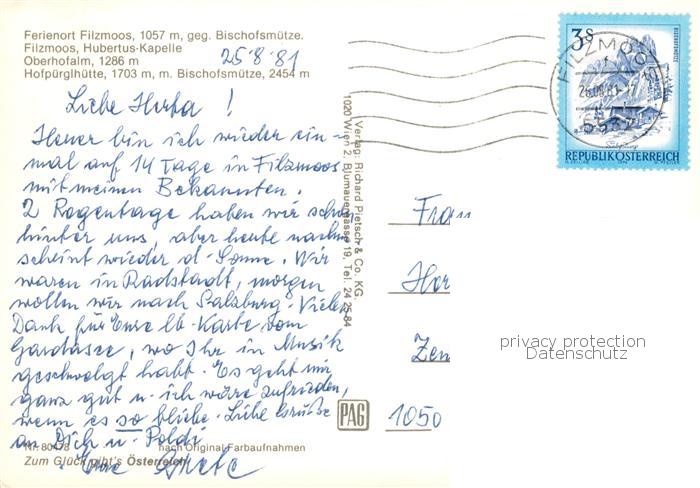 Ferienort Filzmoos, 1057 m, geg. Bischofsmütze.
Filzmoos, Hubertus-Kapelle
Oberhofalm, 1286 m
Hofpürglhütte, 1703 m, m. Bischofsmütze, 2454 m
25·8·81
Liebe Herta !
Heuer bin ich wieder ein-
mal auf 14 Tage in Filzmoos
mit meinen Bekannten.
2 Regentage haben wir schon
hinter uns, aber heute nachm.
scheint wieder d. Sonne. Wir
waren in Radstadt, morgen
wollen wir nach Salzburg. Vielen
Dank für Eure lb. Karte vom
Gardasee, wo Ihr in Musik
geschwelgt habt. Es geht mir
ganz gut u. ich wäre zufrieden,
wenn es so bliebe. Liebe Grüße
an Dich u. Poldi
Eure Grete
Nr. 80478 nach Original Farbaufnahmen
Zum Glück gibt's Österreich
Verlag: Richard Pietsch & Co. KG.
1020 Wien 2, Blumauergasse 19, Tel. 24 25 84
PAG
3 S
BISCHOFSMÜTZE
REPUBLIK ÖSTERREICH
FILZMOOS
26.08.81-17
Frau
Her
Zen
1050
privacy protection
Datenschutz